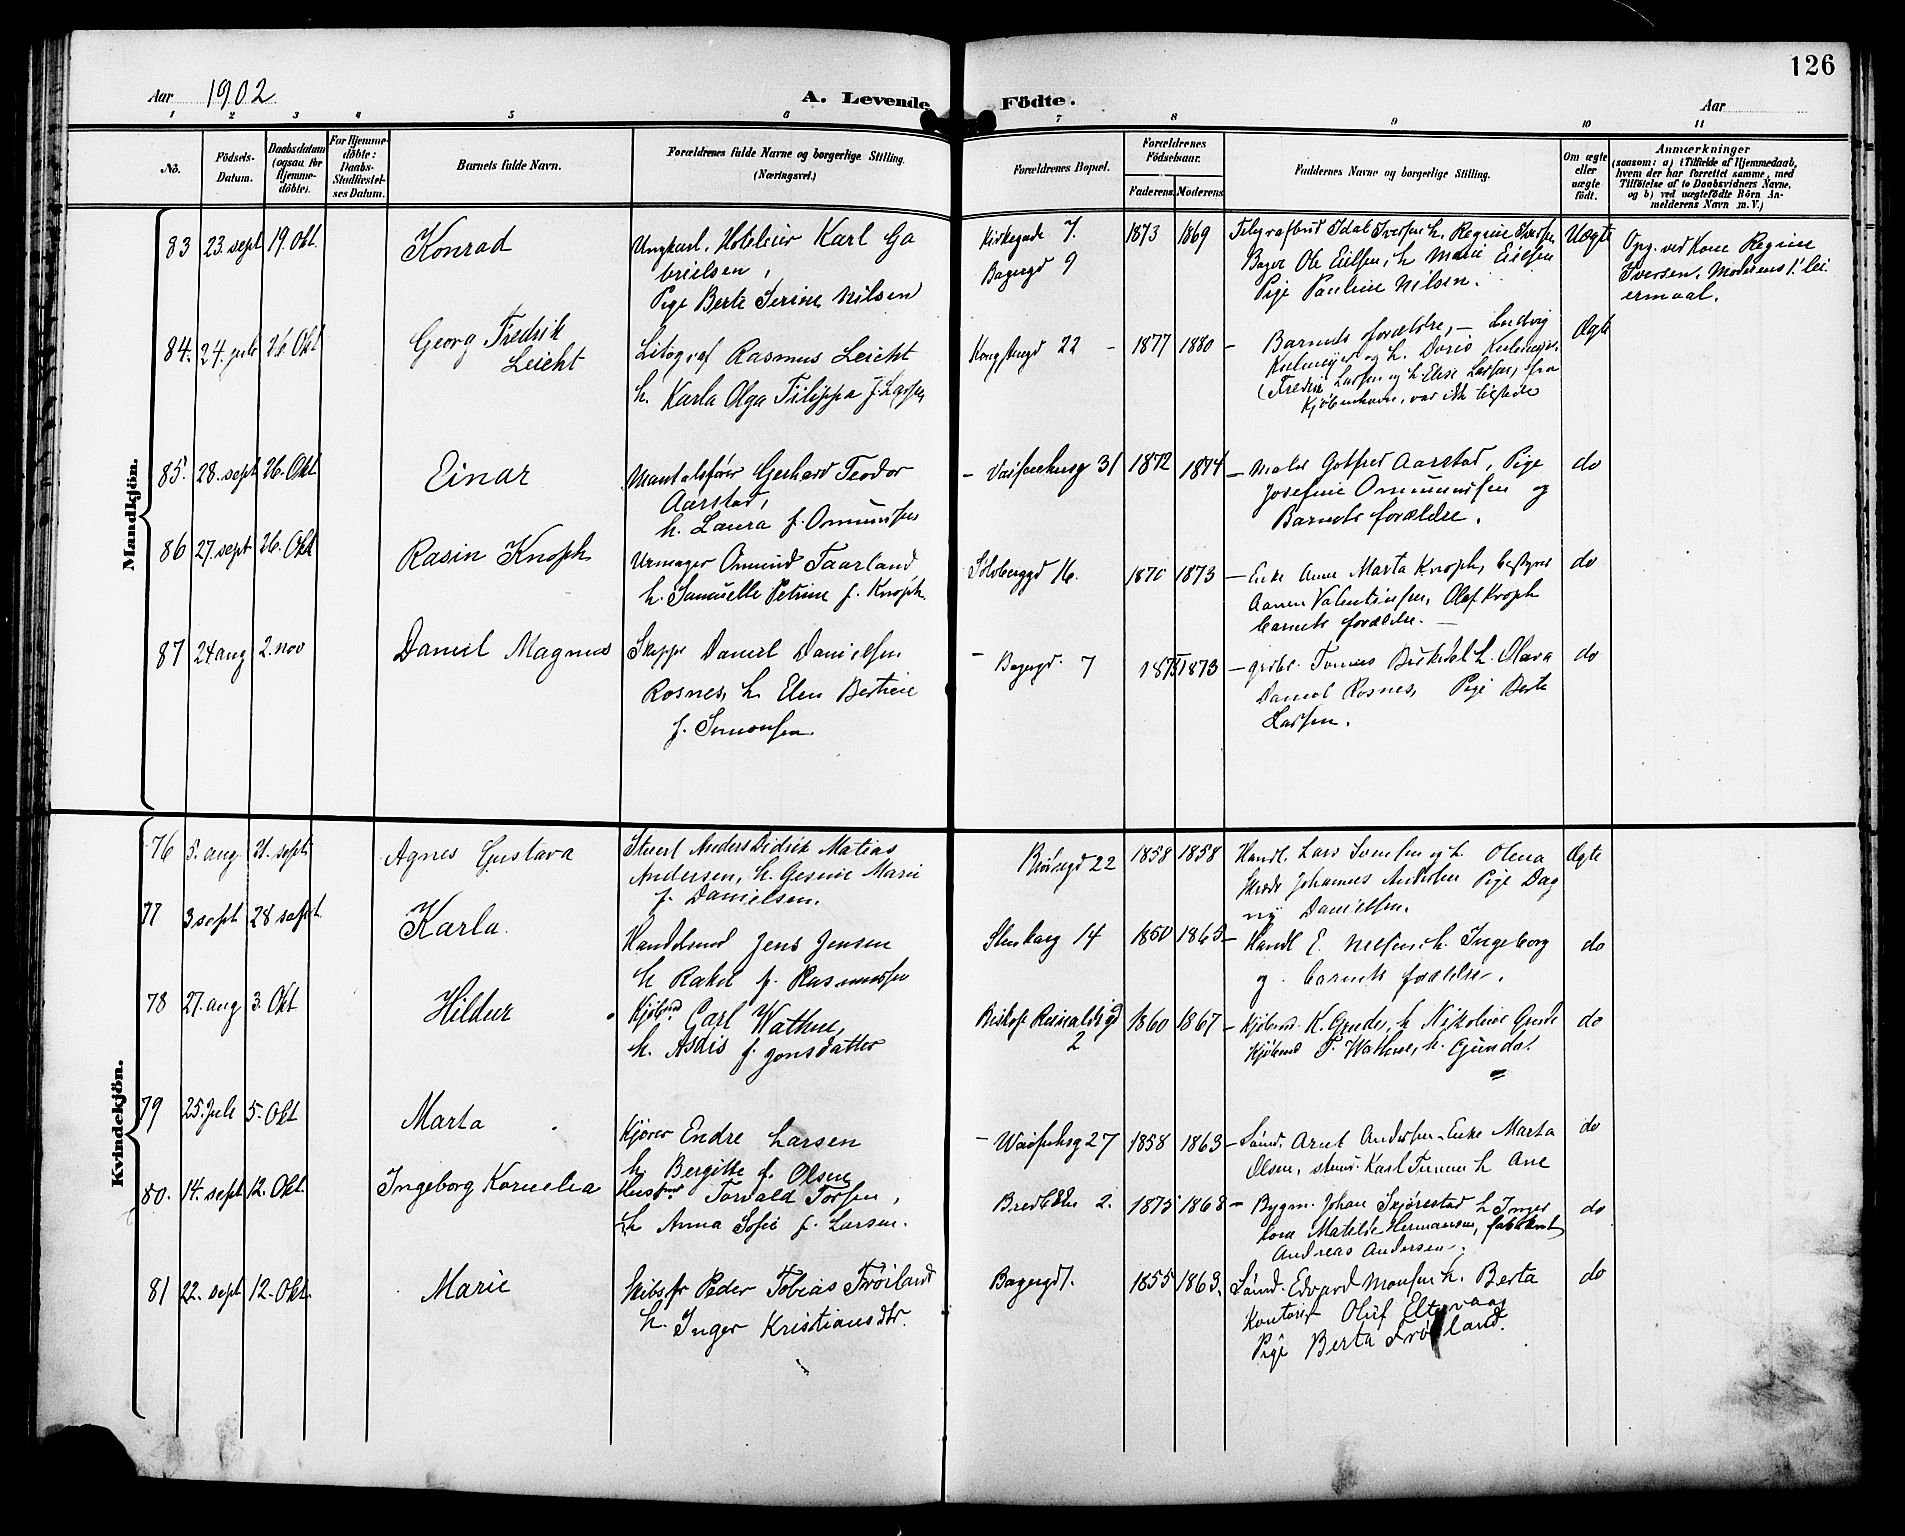 126
Aar 1902
A. Levende Födte.
Aar
1 2 3 4 5 6 7 8 9 10 11
No.
Födsels-Datum.
Daabsdatum (ogsaa for Hjemme-döbte).
For Hjemme-döbte: Daabs-Stadfæstel-ses Datum.
Barnets fulde Navn.
Forældrenes fulde Navne og borgerlige Stilling.
(Næringsvei.)
Forældrenes Bopæl.
Forældrenes Födselsaar.
Faderens. Moderens.
Faddernes Navne og borgerlige Stilling.
Om ægte eller uægte födt.
Anmærkninger
(saasom: a) i Tilfælde af Hjemmedaab,
hvem der har forrettet samme, med
Tilföielse af to Daabsvidners Navne,
og b) ved uægtefödte Börn An-
melderens Navn m. V.)
Mandkjön.
83 23. sept 19. Okt. Konrad
Ungkarl. Hoteleier Karl Ga
brielsen,
Pige Berte Serine Nilsen
Kirkegade 7.
Bagergd 9
1873 1869
Telegrafbud Idal Iversen h. Regine Iversen
Bager Ole Eielsen, h Marie Eielsen
Pige Pauline Nilsen.
Uægte
Opg. ved Kone Regine
Iversen. Moderens 1' lei
ermaal.
84. 24. juli 26. Okt Georg Fredrik
Leicht
Litograf Rasmus Leicht
h. Karla Olga Filippa f. Larsen
Kongstengd 22 - 1877 1880
- Barnets forældre, - Ludvig
og h. Doris
(Fredrik Larsen og h Else Larsen, fra
Kjøbenhavn, var ikke tilstede
Ægte
85. 28. sept 26. Okt Einar
Mantalsfører Gerhard Teodor
Aarstad,
h. Laura f. Omundsen
- Vaisenhusg 31 1872 1874
- Maler Gotfred Aarstad, Pige
Josefine Ommundsen og
Barnets forældre.
do
86 27. sept 26. Okt Rasin Knoph
Urmager Omund Taarland
h. Samuelle Petrine f. Knoph.
Solvberggd 16. 1870 1873
- Enke Anne Marta Knoph, bestyrer
Valentinsen, Olaf Knoph
barnets forældre.
do
87 24 aug 2. nov Daniel Magnus
Skipper Daniel Danielsen
Rosnes, h. Elen Bertine
f. Simonsen.
- Bagergd. 7 1875 1873
- Tomas h. Olava
Daniel Rosnes, Pige Berte
Larsen.
do
Kvindekjön.
76 5. aug 21. sept Agnes Gustava
Stuert Anders Didrik Matias
Andersen, h. Gesine Marie
f. Danielsen.
22 1858 1858
Handl. Lars Svensen og h. Olena
Johannes Andersen Pige Dag
ny Danielsen.
Ægte
77 3 sept 28 sept. Karla.
Handelsmd Jens Jensen
h Rakel f. Rasmussen
Stenkarg 14 1850 1865
- Handl E. Nilsen h. Ingeborg
og. barnets forældre.
do
78 27. aug 3. Okt Hildur
Kjøbmd. Carl Wathne,
h. Asdis f. Jonsdatter
Biskop Reinaldsgd
2
1860 1867
- Kjøbmd. K. Grude, h Nikoline Grude
Kjøbmd T. Wathne, h. Gunda.
do
79 25. Juli 5. Okt Marta
Kjører Endre Larsen
h. Bergitte f. Olsen
- Vaisenhsg 27 1858 1863
- Sømd. Arnt Andersen. Enke Marta
Olsen, Karl h Ane
do
80. 14. sept 12. Okt Ingeborg Kornelia
Torvald Torsen,
h Anna Sofie f. Larsen.
2. 1875 1868
- Bygm. Johan Skjørestad h Inger
Matilde Hermansen, fabrikant
Andreas Andersen.
do
81 22. sept 12. Okt. Marie
Skibsfr Peder Tobias Frøiland
h. Inger Kristiansdtr.
Bagergd 1. 1855 1863.
Sømd. Edvard Monsen h. Berta
Kontorist Oluf Eltervaag
Pige Berta Frøiland.
do